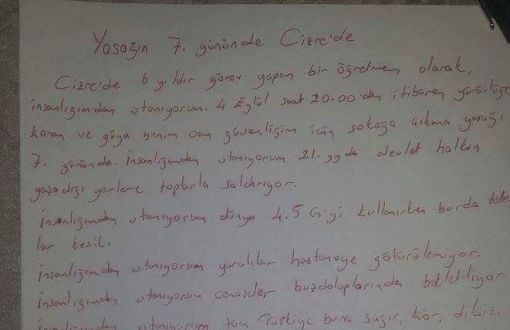 Yasağın 7. gününde Cizre'de
Cizre'de 6 yıldır görev yapan bir öğretmen olarak,
insanlığımdan utanıyorum. 4 Eylül saat 20.00'den itibaren yürürlüğe
konan ve güya benim can güvenliğim için sokağa çıkma yasağı
7. gününde. insanlığımdan utanıyorum 21. yy da devlet halkın
yaşadığı yerlere toplarla saldırıyor.
insanlığımdan utanıyorum dünya 4.5 G'yi kullanırken burda
lar kesik.
insanlığımdan utanıyorum yaralılar hastaneye götürülemiyor.
insanlığımdan utanıyorum cenazeler buzdolaplarında bekletiliyor
utanıyorum tüm Türkiye buna sağır, kör, dilsiz.